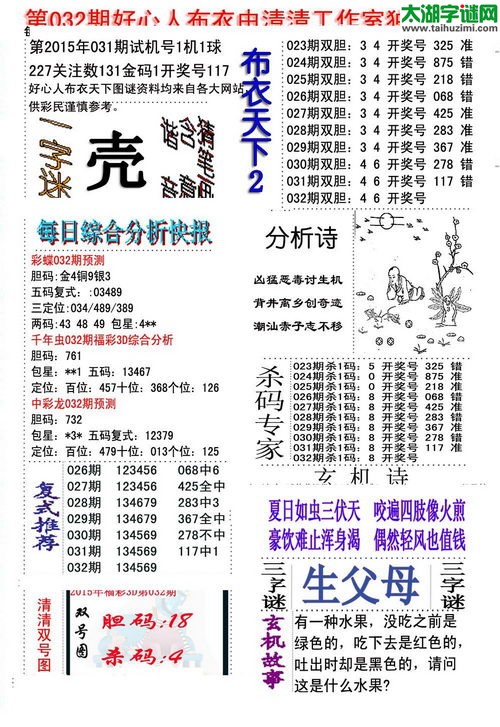 太湖字谜网
www.taihuzimi.com
第032期好心人布衣由清清工作室
第2015年031期试机号1机1球
227关注数131金码1开奖号117
好心人布衣天下图谜资料均来自各大网站,
供彩民谨慎参考。
一字迷
壳
布衣天下2
023期双胆: 3 4 开奖号 325 准
024期双胆: 3 4 开奖号 875 错
025期双胆: 3 4 开奖号 218 错
026期双胆: 3 4 开奖号 068 错
027期双胆: 3 4 开奖号 425 准
028期双胆: 3 4 开奖号 283 准
029期双胆: 3 4 开奖号 367 准
030期双胆: 4 6 开奖号 278 错
031期双胆: 4 6 开奖号 117 错
032期双胆: 4 6 开奖号
每日综合分析快报
彩蝶032期预测
胆码:金4铜9银3
五码复式: :03489
三定位:034/489/389
两码: 43 48 49 包星:4**
千年虫032期福彩3D综合分析
胆码: 761
包星: **1 五码: 13467
定位: 百位: 457十位: 368个位: 126
中彩龙032期预测
胆码: 732
包星: *3* 五码复式: 12379
定位: 百位: 479十位: 013个位: 125
分析诗
凶猛恶毒讨生机
背井离乡创奇迹
潮汕赤子志不移
杀码专家
023期杀1码: 5 开奖号 325 错
024期杀1码: 0 开奖号 875 准
025期杀1码: 0 开奖号 218 准
026期杀1码: 8 开奖号 068 错
027期杀1码: 8 开奖号 425 准
028期杀1码: 8 开奖号 283 错
029期杀1码: 8 开奖号 367 准
030期杀1码: 8 开奖号 278 错
031期杀1码: 8 开奖号 117 准
032期杀1码: 8 开奖号
复式推荐
026期 123456 068中6
027期 123456 425全中
028期 134679 283中3
029期 134679 367全中
030期 134569 278不中
031期 134569 117中1
032期 134569
玄机诗
夏日如虫三伏天 咬遍四肢像火煎
豪饮难止浑身渴 偶然轻风也值钱
三字谜
生父母
三字谜
清清双号图
2015年福彩3D第032期
双号图
胆码:18
杀码:4
玄机故事
有一种水果，没吃之前是
绿色的，吃下去是红色的，
吐出时却是黑色的，请问
这是什么水果?